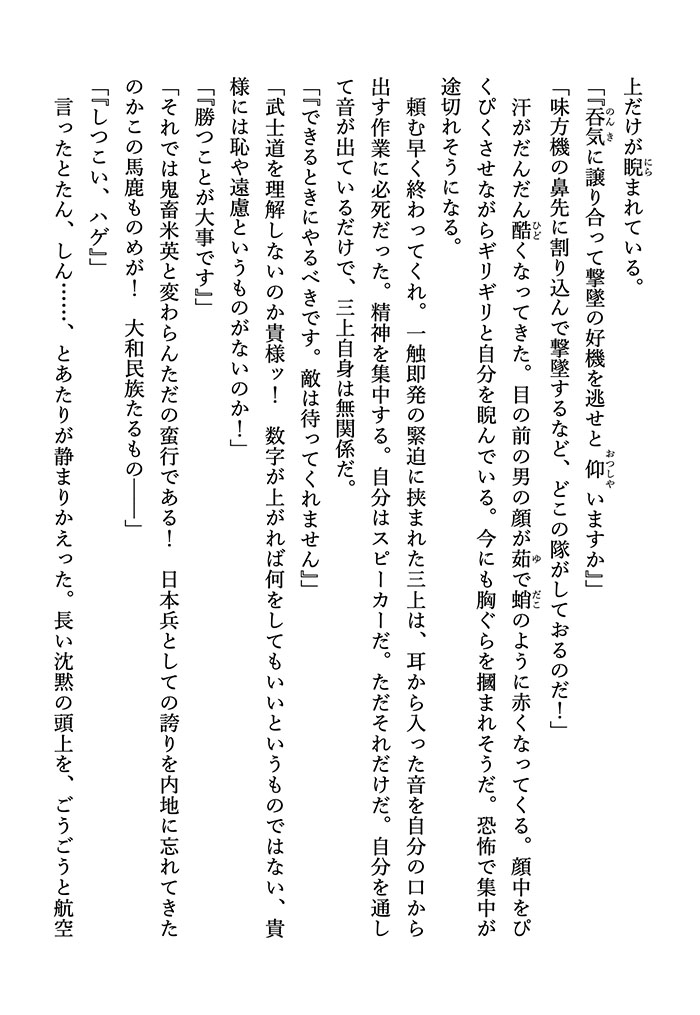 上だけが睨まれている。
「『呑気に譲り合って撃墜の好機を逃せと仰いますか』」
「味方機の鼻先に割り込んで撃墜するなど、どこの隊がしておるのだ！」
　汗がだんだん酷くなってきた。目の前の男の顔が茹で蛸のように赤くなってくる。顔中をぴ
くぴくさせながらギリギリと自分を睨んでいる。今にも胸ぐらを摑まれそうだ。恐怖で集中が
途切れそうになる。
　頼む早く終わってくれ。一触即発の緊迫に挟まれた三上は、耳から入った音を自分の口から
出す作業に必死だった。精神を集中する。自分はスピーカーだ。ただそれだけだ。自分を通し
て音が出ているだけで、三上自身は無関係だ。
「『できるときにやるべきです。敵は待ってくれません』」
「武士道を理解しないのか貴様ッ！　数字が上がれば何をしてもいいというものではない、貴
様には恥や遠慮というものがないのか！」
「『勝つことが大事です』」
「それでは鬼畜米英と変わらんただの蛮行である！　日本兵としての誇りを内地に忘れてきた
のかこの馬鹿ものめが！　大和民族たるもの――」
「『しつこい、ハゲ』」
　言ったとたん、しん……、とあたりが静まりかえった。長い沈黙の頭上を、ごうごうと航空